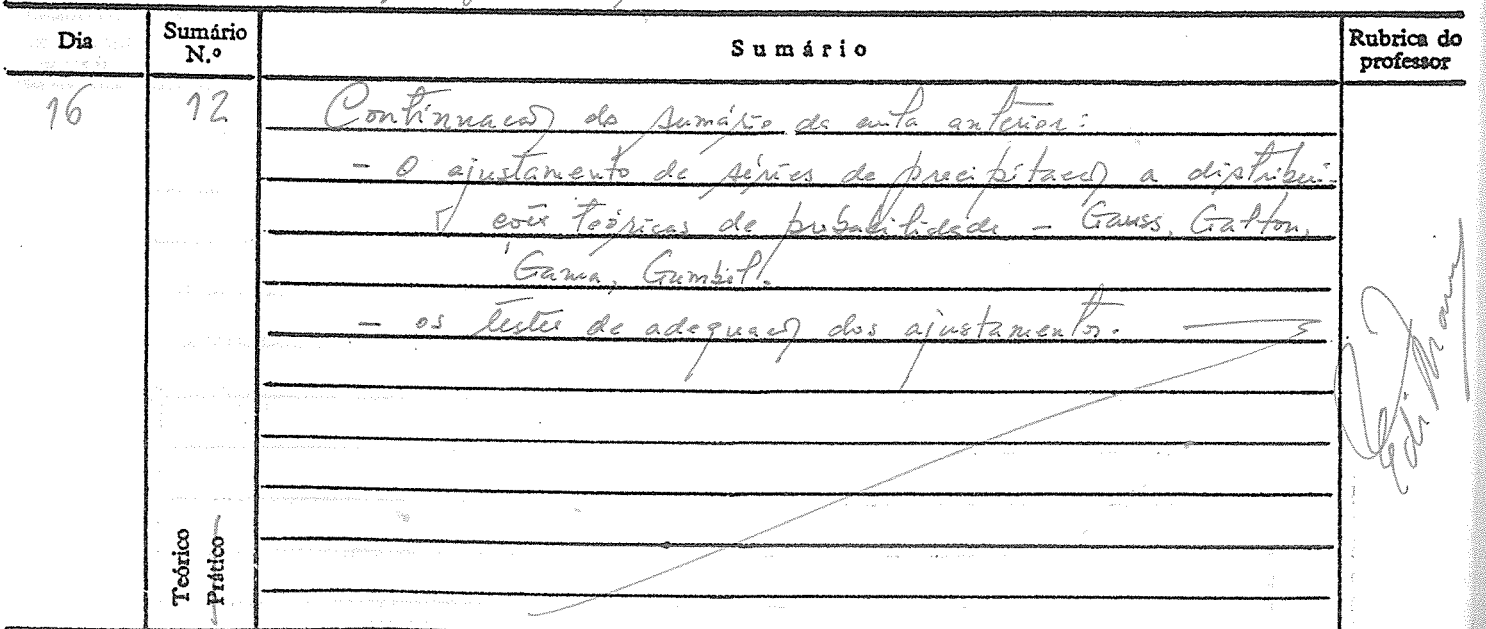 Dia
Sumário N.º
Sumário
Rubrica do professor
16
12
Continuação do sumário da aula anterior:
- O ajustamento de séries de precipitação a distribui-
ções teóricas de probabilidade - Gauss, Galton,
Gama, Gumbel.
- os testes de adequação dos ajustamentos.
Teórico
Prático